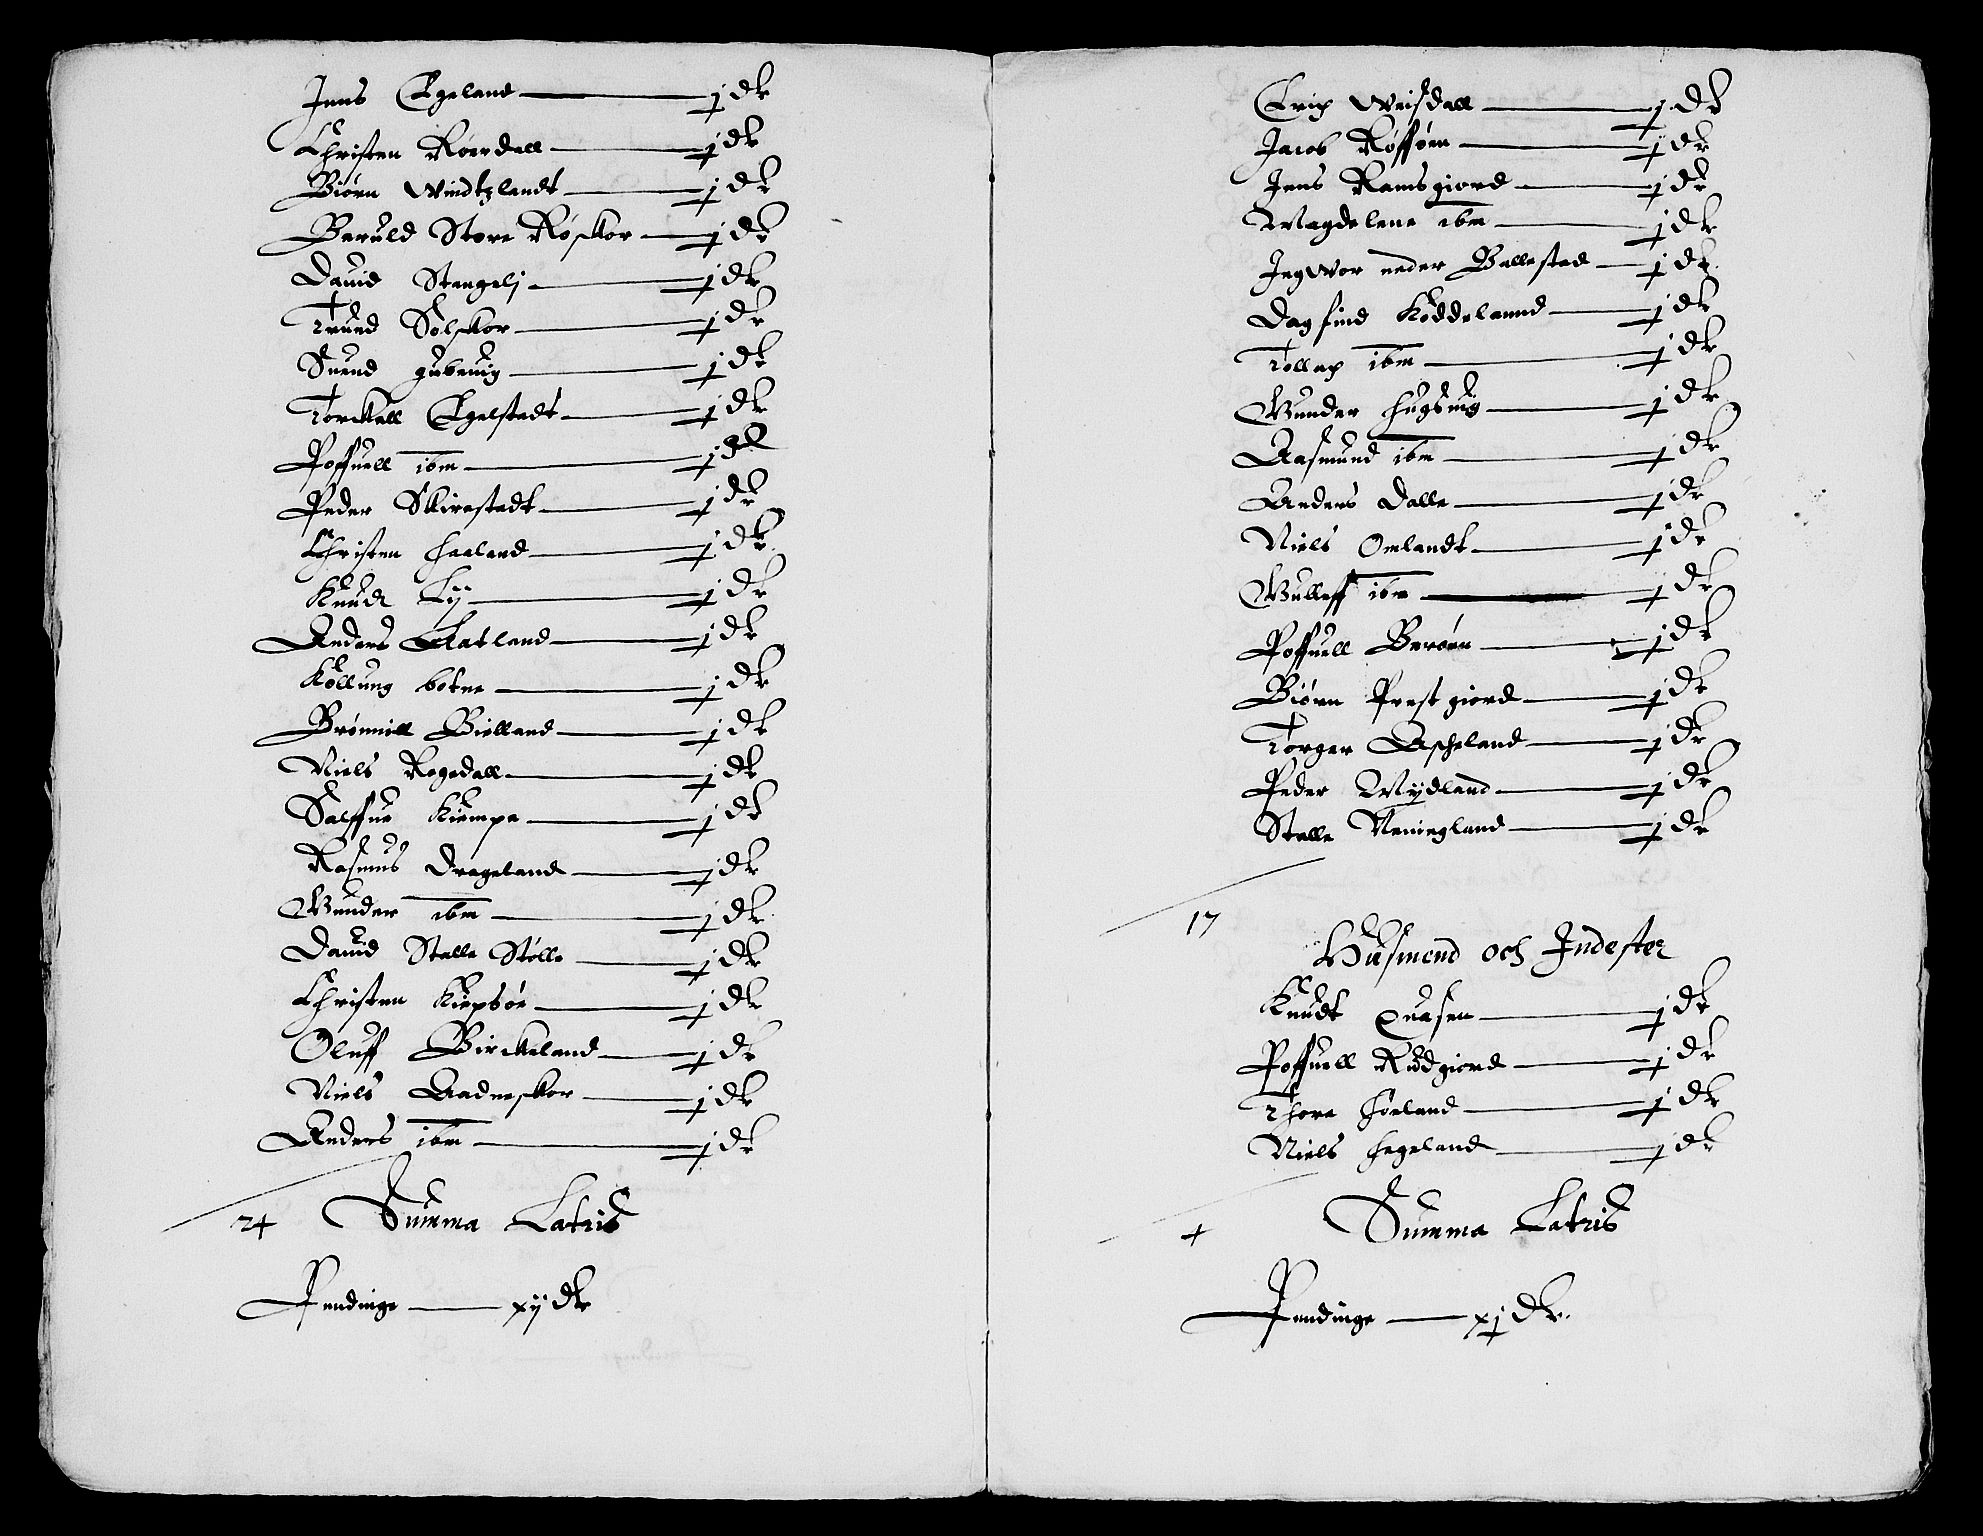 Jens Egeland — j dr
Christen Roerdall — j dr
Biørn Windtzlandt — j dr
Beruld Store Røskor — j dr
Dauid Stangelj — j dr
Trund Solskor — j dr
Suend gubeuig — j dr
Torckell Egelstadt — j dr
Poffuell ibm — j dr
Peder Skirestadt — j dr
Christen haaland — j dr
Knudt Lij — j dr
Anders Aatland — j dr
Kollung botne — j dr
Brønnill Bielland — j dr
Niels Regedall — j dr
Salffue Kiempe — j dr
Rasmus Drageland — j dr
Gunder ibm — j dr
Dauid Stalle Stølle — j dr
Christen Kiepsør — j dr
Oluff Birckeland — j dr
Niels Aadneskor — j dr
Anders ibm — j dr
24 Summa Latris
Pendinge — xij dr
Erich Weisdall — j dr
Jacob Røfføen — j dr
Jens Ramsgiord — j dr
Magdelene ibm — j dr
Ingwor neder Ballestad — j dr
Dagfind Koddelannd — j dr
Tollach ibm — j dr
Gunder hugsuig — j dr
Aasmund ibm — j dr
Anders Dalle — j dr
Niels Omlandt — j dr
Gulleff ibm — j dr
Poffuell Berøen — j dr
Biørn Prestgiord — j dr
Torger Ascheland — j dr
Peder Mydland — j dr
Stalle Neningland — j dr
17
Husmend och Indester
Knudt Quasen — j dr
Poffuell Rødgiord — j dr
Thore høeland — j dr
Niels hegeland — j dr
4 Summa Latris
Pendinge — xj dr.